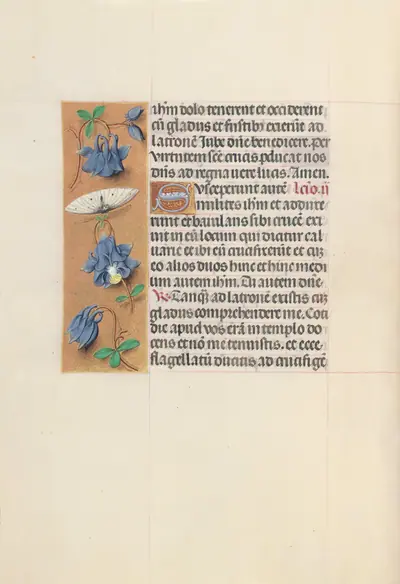 ihm̅ dolo tenerent et occiderent
cū gladiis et fustibz exierūt ad
latronē Iube dn̄e benedicere. per
virtutem scē crucis ꝑducat nos
dn̄s ad regna uere lucis. Amen.
Susceperunt autē Lctio. ij
milites ihm̅ et addux
runt et baiulans sibi crucē exi
uit in eū locum qui dicitur cal
uarie et ibi eū crucifixerūt et cuz
eo alios duos hinc et hinc medi
um autem ihm̅. Tu autem dn̄e
R̷ Tanqz ad latronē existis cuz
gladiis comprehendere me. Coti
die apud vos erā in templo do
cens et nō me tenuistis. et ecce
flagellatū ducitis ad crucifigē